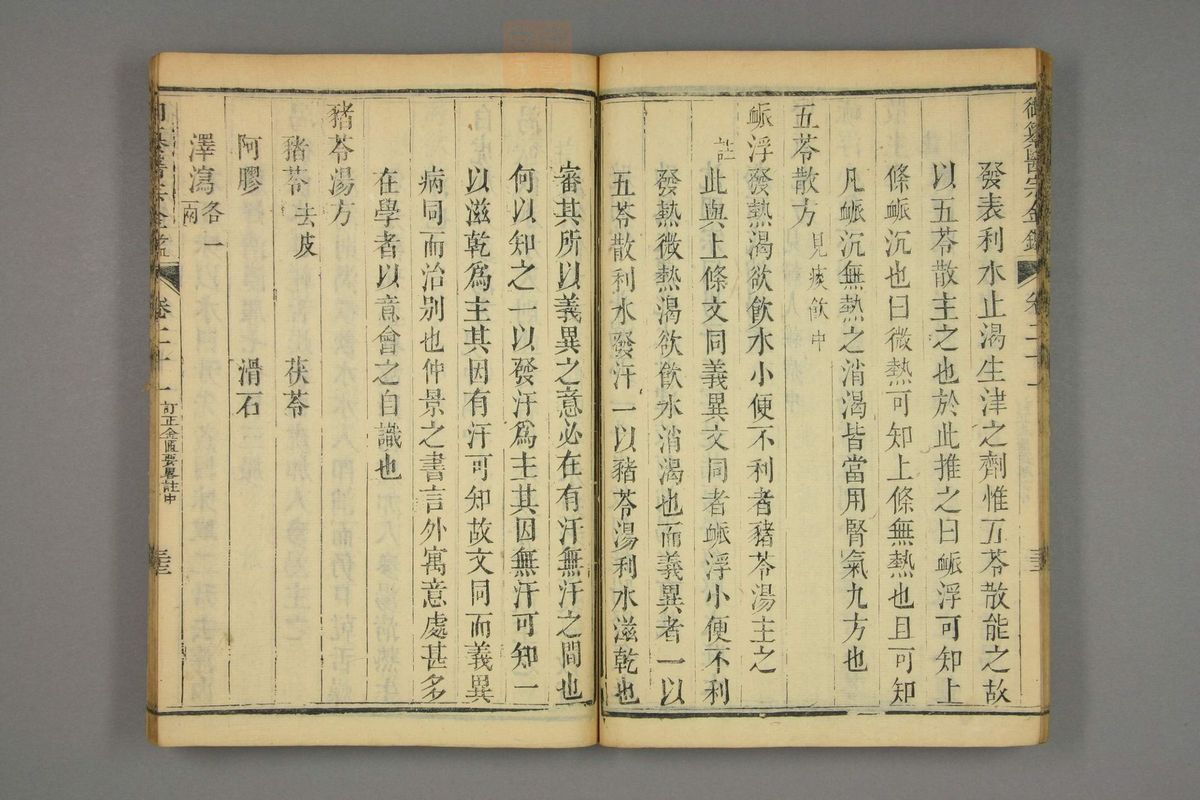 發表利水止渴生津之劑惟五苓散能之故
以五苓散主之也於此推之曰脈浮可知上
條脈沉也曰微熱可知上條無熱也且可知
凡脈沉無熱之消渴皆當用腎氣九方也
五苓散方見痰飲中
脈浮發熱渴欲飲水小便不利者豬苓湯主之
註
此與上條文同義異文同者脈浮小便不利
發熱微熱渴欲飲水消渴也而義異者一以
五苓散利水發汗一以豬苓湯利水滋乾也
審其所以義異之意必在有汗無汗之間也
何以知之一以發汗為主其因無汗可知一
以滋乾為主其因有汗可知故文同而義異
病同而治別也仲景之書言外寓意處甚多
在學者以意會之自識也
豬苓湯方
豬苓去皮 茯苓
阿膠 滑石
澤瀉各一兩
御纂醫宗金鑑 卷二十一 訂正金匱要畧註中